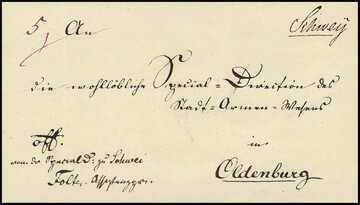 5
An
Schwey
die wohllöbliche Special-Direction des
Stadt-Armen-Wesens
in
Oldenburg
off.
von der Special D. zu Schwei